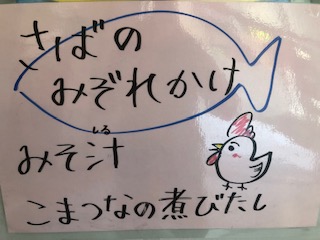 さばの
みぞれかけ
みそ汁
しる
こまつなの煮びたし